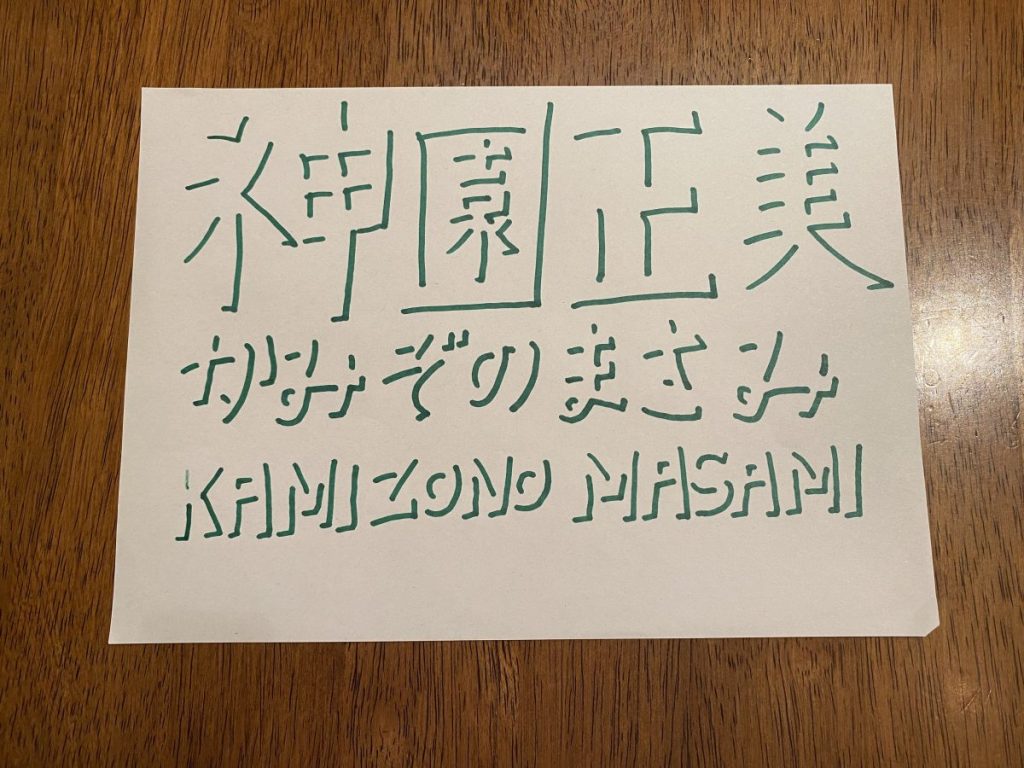 神園正美
かみぞの まさみ
KAMIZONO MASAMI